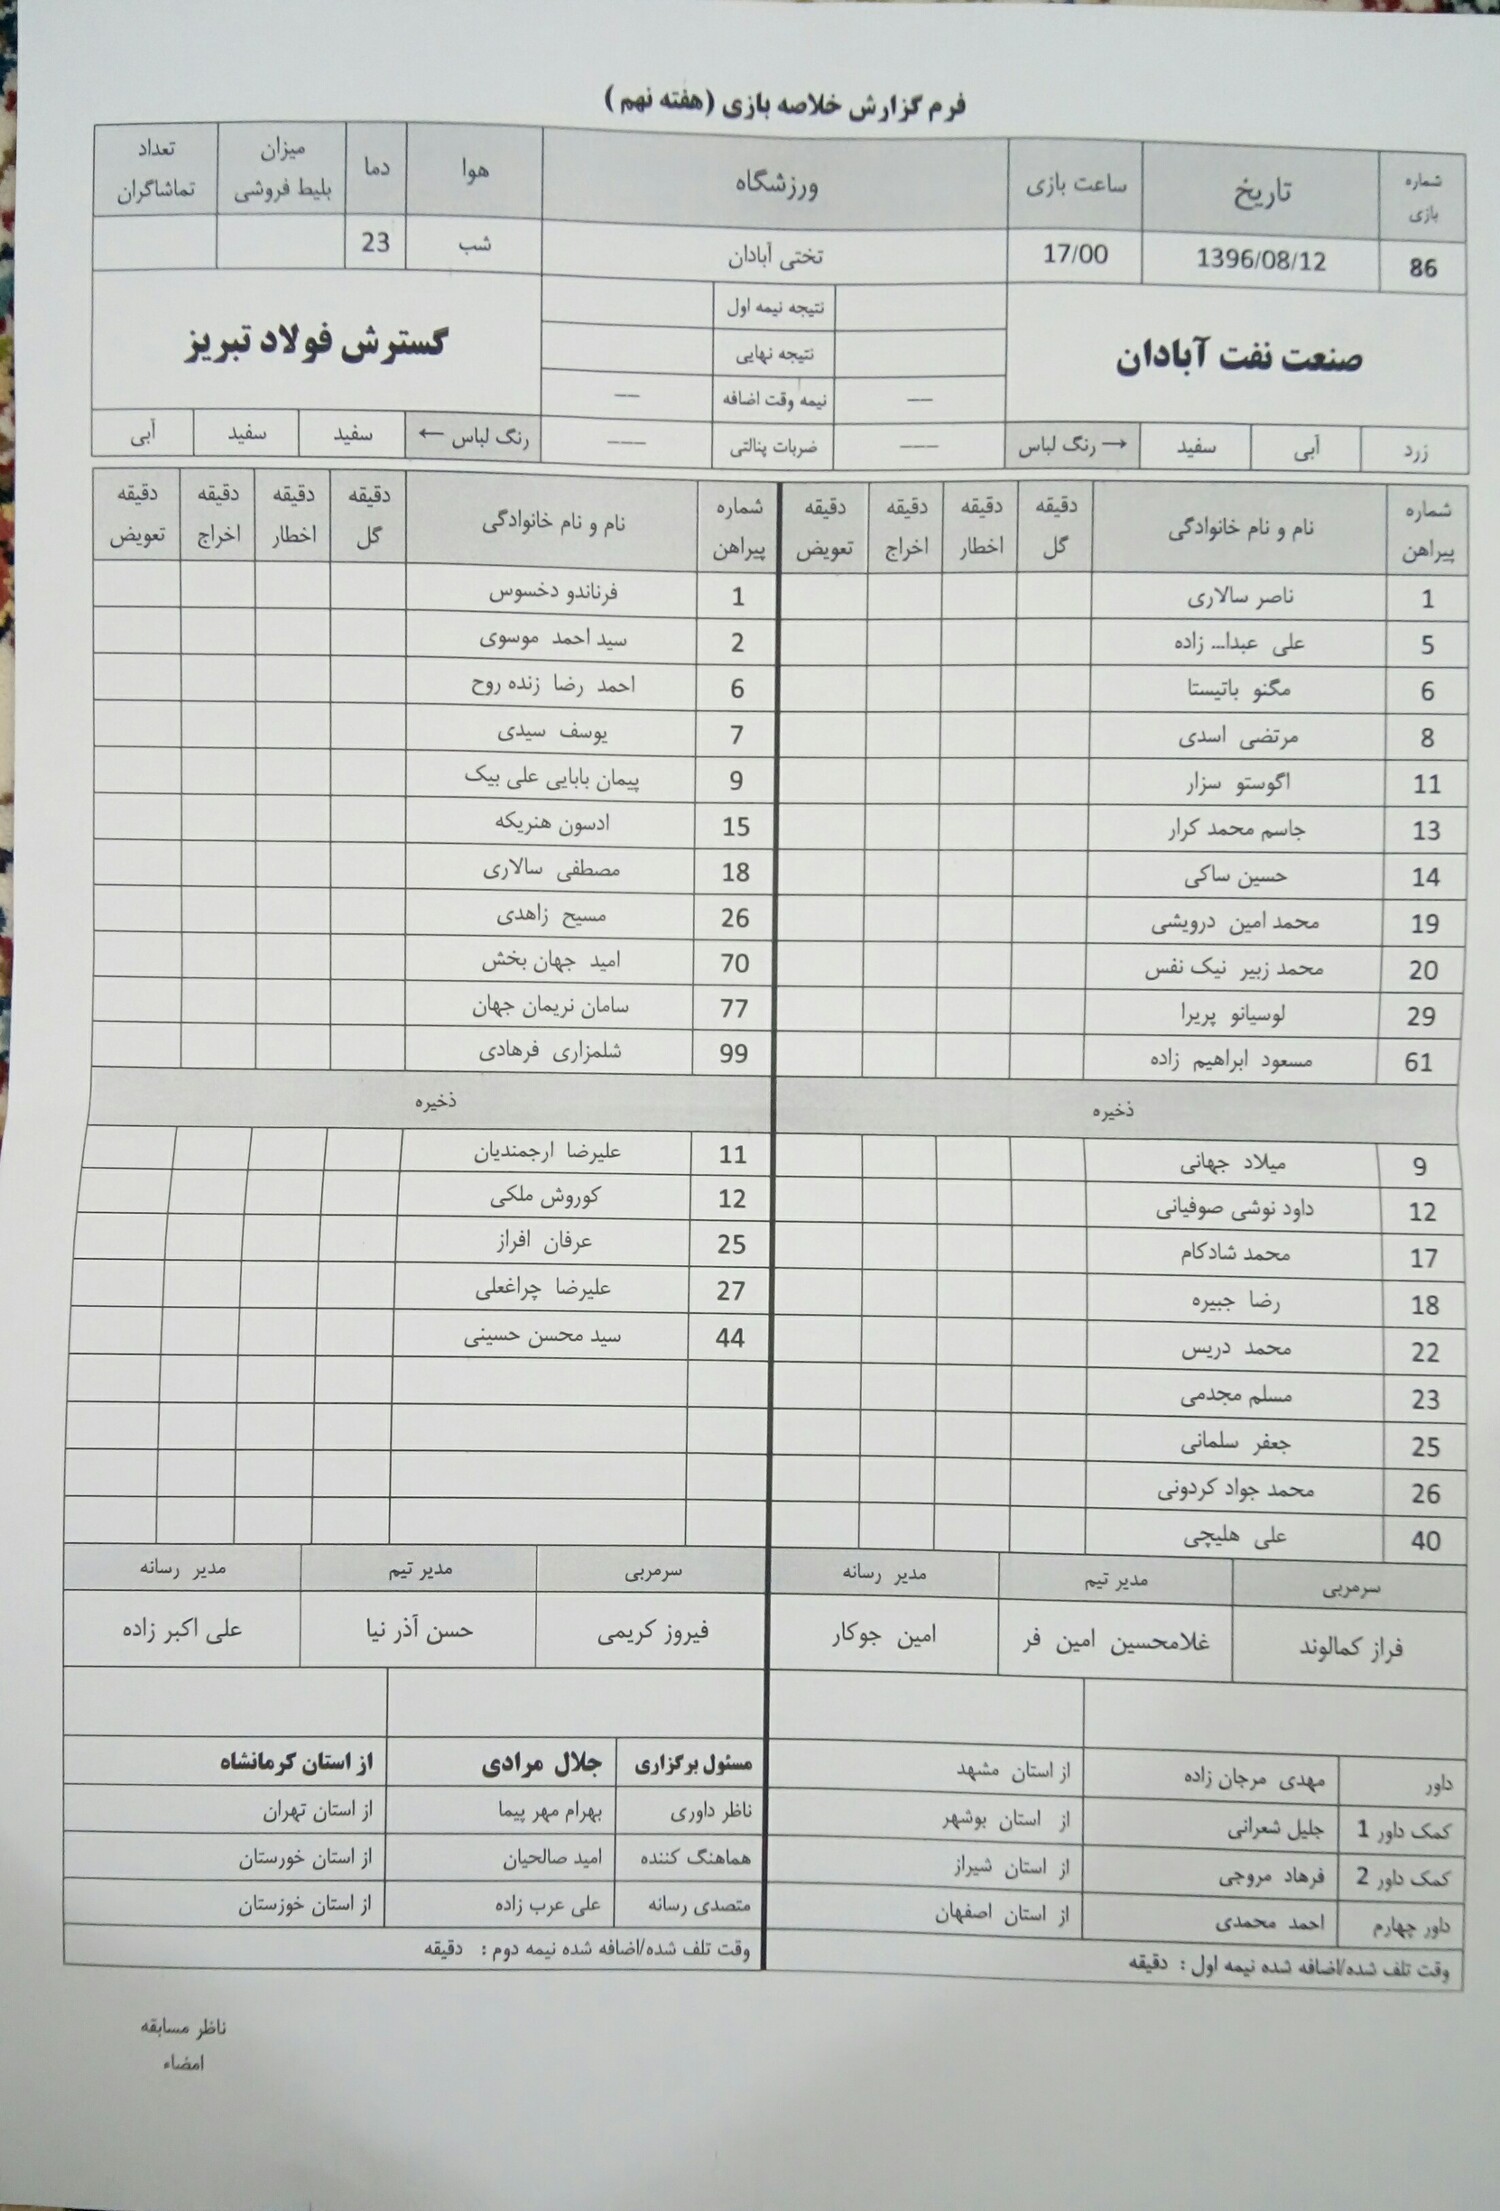 فرم گزارش خلاصه بازی (هفته نهم )
شماره بازی تاریخ ساعت بازی ورزشگاه هوا دما میزان بلیط فروشی تعداد تماشاگران
86 1396/08/12 17/00 تختی آبادان شب 23
صنعت نفت آبادان نتیجه نیمه اول گسترش فولاد تبریز
نتیجه نهایی
--- نیمه وقت اضافه ---
زرد آبی سفید → رنگ لباس ---- ضربات پنالتی ---- رنگ لباس ← سفید سفید آبی
شماره پیراهن نام و نام خانوادگی دقیقه گل دقیقه اخطار دقیقه اخراج دقیقه تعویض شماره پیراهن نام و نام خانوادگی دقیقه گل دقیقه اخطار دقیقه اخراج دقیقه تعویض
1 ناصر سالاری 1 فرناندو دخسوس
5 علی عبدا... زاده 2 سید احمد موسوی
6 مگنو باتیستا 6 احمد رضا زنده روح
8 مرتضی اسدی 7 یوسف سیدی
11 اگوستو سزار 9 پیمان بابایی علی بیک
13 جاسم محمد کرار 15 ادسون هنریکه
14 حسین ساکی 18 مصطفی سالاری
19 محمد امین درویشی 26 مسیح زاهدی
20 محمد زبیر نیک نفس 70 امید جهان بخش
29 لوسیانو پریرا 77 سامان نریمان جهان
61 مسعود ابراهیم زاده 99 شلمزاری فرهادی
ذخیره ذخیره
9 میلاد جهانی 11 علیرضا ارجمندیان
12 داود نوشی صوفیانی 12 کوروش ملکی
17 محمد شادکام 25 عرفان افراز
18 رضا جبیره 27 علیرضا چراغعلی
22 محمد دریس 44 سید محسن حسینی
23 مسلم مجدمی
25 جعفر سلمانی
26 محمد جواد کردونی
40 علی هلیچی
سرمربی مدیر تیم مدیر رسانه سرمربی مدیر تیم مدیر رسانه
فراز کمالوند غلامحسین امین فر امین جوکار فیروز کریمی حسن آذر نیا علی اکبر زاده
داور مهدی مرجان زاده از استان مشهد مسئول برگزاری جلال مرادی از استان کرمانشاه
کمک داور 1 جلیل شعرانی از استان بوشهر ناظر داوری بهرام مهر پیما از استان تهران
کمک داور 2 فرهاد مروجی از استان شیراز هماهنگ کننده امید صالحیان از استان خورستان
داور چهارم احمد محمدی از استان اصفهان متصدی رسانه علی عرب زاده از استان خوزستان
وقت تلف شده/اضافه شده نیمه اول : دقیقه وقت تلف شده/اضافه شده نیمه دوم : دقیقه
ناظر مسابقه
امضاء